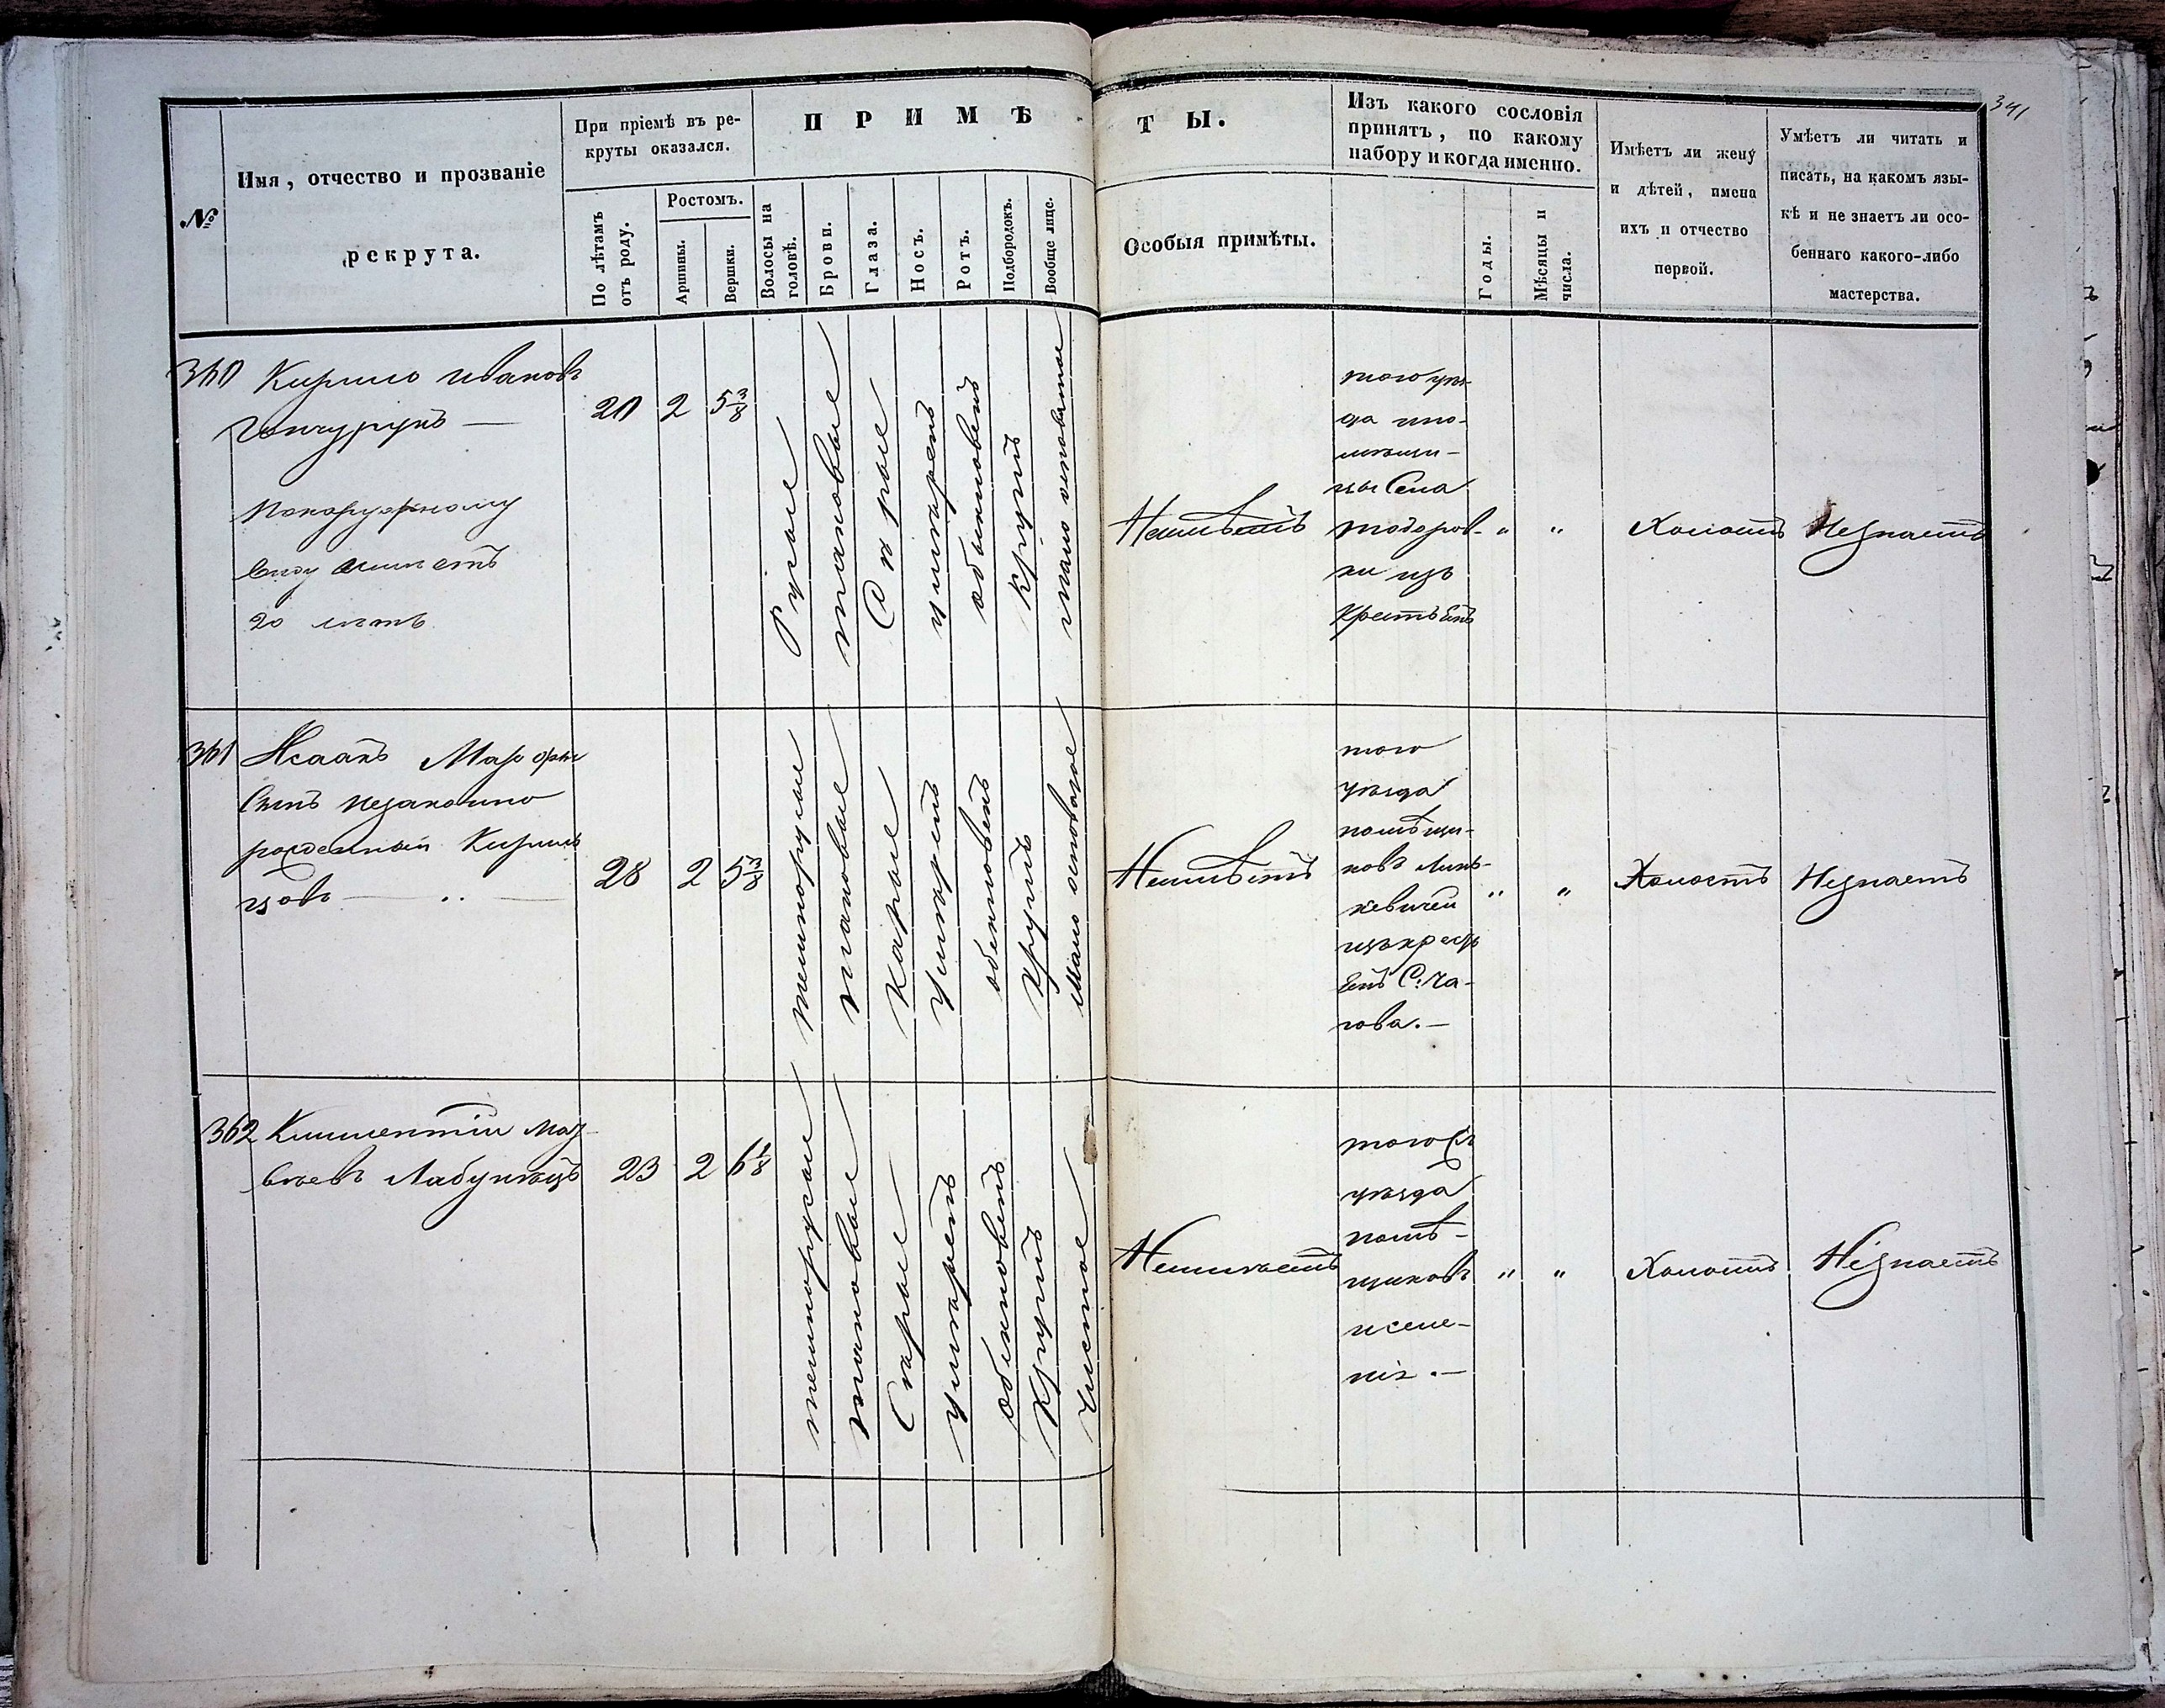 341
№
Имя, отчество и прозваніе
рекрута.
При пріемѣ въ ре-
круты оказался.
По лѣтамъ
отъ роду.
Ростомъ.
Аршины.
Вершки.
ПРИМѢ
ТЫ.
Волосы на
головѣ.
Брови.
Глаза.
Носъ.
Ротъ.
Подбородокъ.
Вообще лице.
Особыя примѣты.
Изъ какого сословія
принятъ, по какому
набору и когда именно.
Годы.
Мѣсяцы и
числа.
Имѣетъ ли жену
и дѣтей, имена
ихъ и отчество
первой.
Умѣетъ ли читать и
писать, на какомъ язы-
кѣ и не знаетъ ли осо-
беннаго какого-либо
мастерства.
360 Кирило Ивановъ
виду
20 лѣтъ
20
2
5 3/8
Русые
таковые
Сѣрые
умѣренъ
обыкновенъ
круглъ
мало осповатое
Неимѣетъ
того уѣз-
да по-
мѣщи-
цы
тодоров-
ки изъ
крестьянъ
" "
Холостъ
Незнаетъ
361 Исаакъ
Сынъ незаконно
рожденный Кирил-
цовъ
28
2
5 3/8
темнорусые
таковые
Карые
Умѣренъ
обыкновенъ
круглъ
мало осповатое
Неимѣетъ
того
уѣзда
помѣщи-
ковъ
кевичей
" "
Холостъ
Незнаетъ
362 Климентій Мат-
вѣевъ Лабунецъ
23
2
6 1/8
темнорусые
таковые
Сѣрые
умѣренъ
обыкновенъ
круглъ
Чистое
Неимѣетъ
уѣзда
помѣ-
щиковъ
" "
Холостъ
Незнаетъ